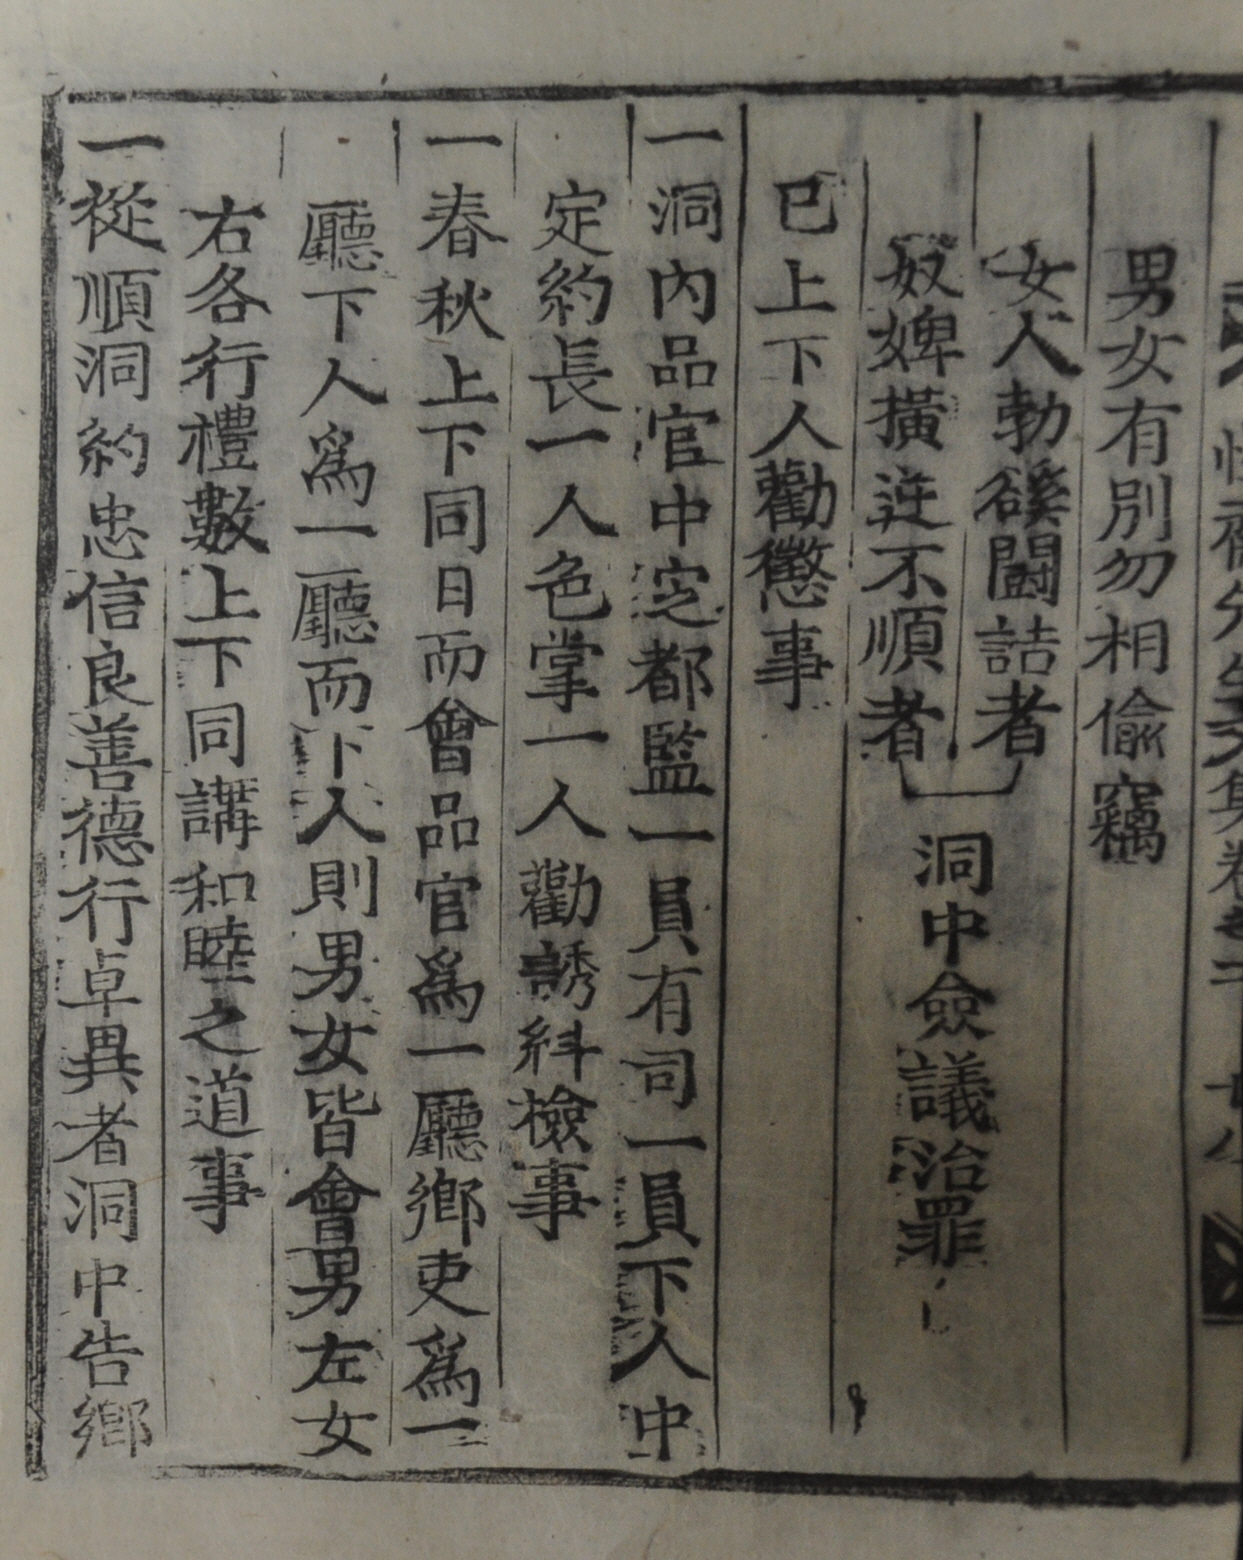 先生文集卷之二
男女有別勿相偸竊
女人勃磎鬪詰者
奴婢橫逆不順者
洞中僉議治罪
已上下人勸懲事
一洞內品官中定都監一員有司一員下人中
定約長一人色掌一人勸誘糾檢事
一春秋上下同日而會品官爲一廳鄕吏爲一
廳下人爲一廳而下人則男女皆會男左女
右各行禮數上下同講和睦之道事
一從順洞約忠信良善德行卓異者洞中告鄕